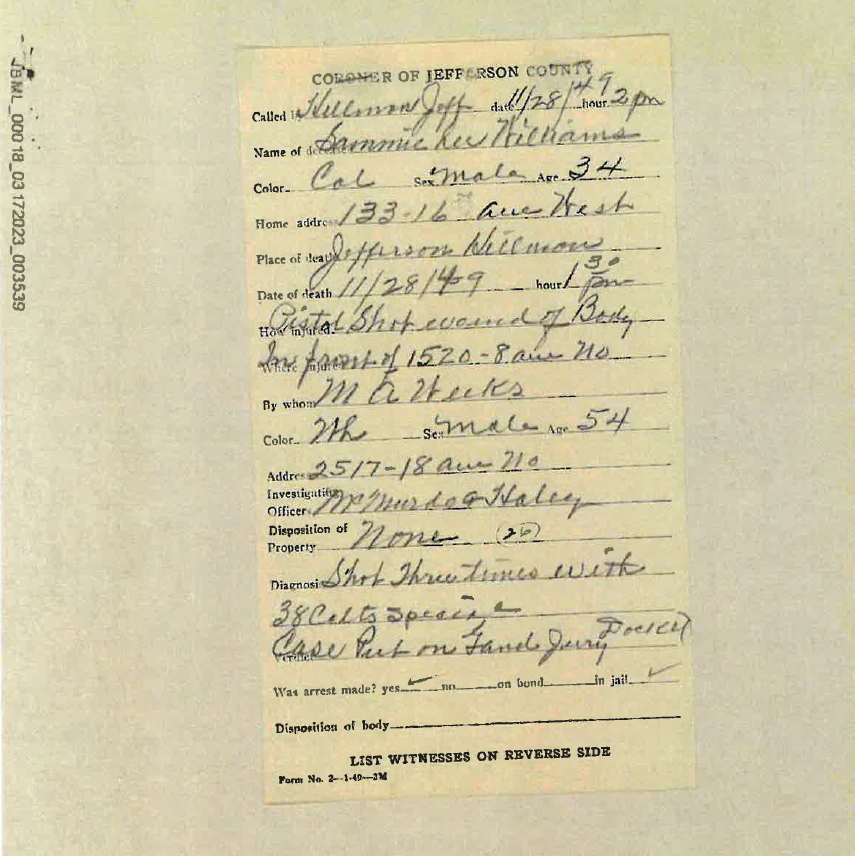 JBML_00018_03172023_003539
CORONER OF JEFFERSON COUNTY
Called by Hillman Jeff date 11/28/49 hour 2 pm
Name of deceased Sammie Lee Williams
Color Col Sex Male Age 34
Home address 133-16 ave West
Place of death Jefferson Hillman
Date of death 11/28/49 hour 1 30 pm
How injured Pistol Shot wound of Body
Where injured In front of 1520-8 ave No
By whom M A Weeks
Color Wh Sex Male Age 54
Address 2517-18 ave No
Investigating
Officer McMurdo & Haley
Disposition of
Property None (26)
Diagnosis Shot Three times with
38 Colts Special
Verdict Case Put on Gand Jury Docket
Was arrest made? yes ✓ no on bond in jail ✓
Disposition of body
LIST WITNESSES ON REVERSE SIDE
Form No. 2-1-49-3M